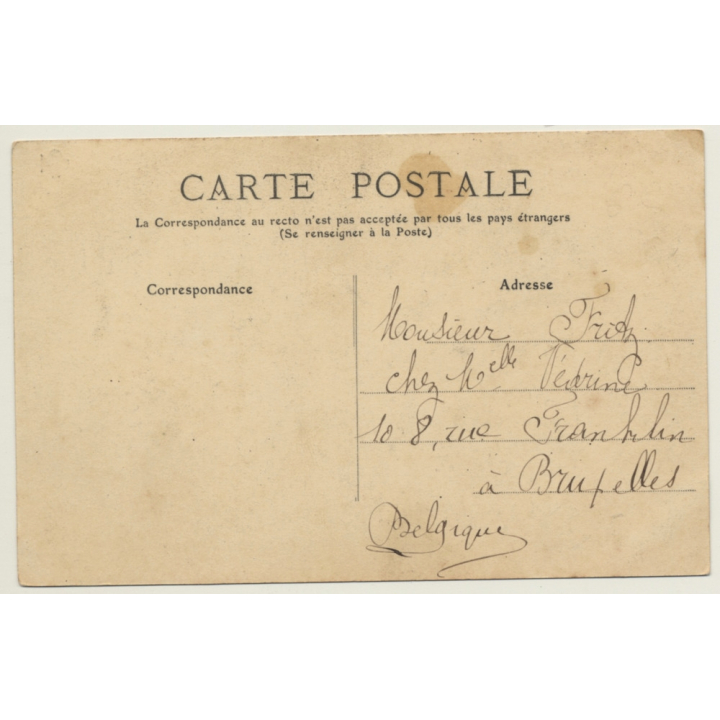 CARTE POSTALE
La Correspondance au recto n'est pas acceptée par tous les pays étrangers
(Se renseigner à la Poste)
Correspondance
Adresse
Monsieur Fritz
chez Melle Védrine
108, rue Franklin
à Bruxelles
Belgique